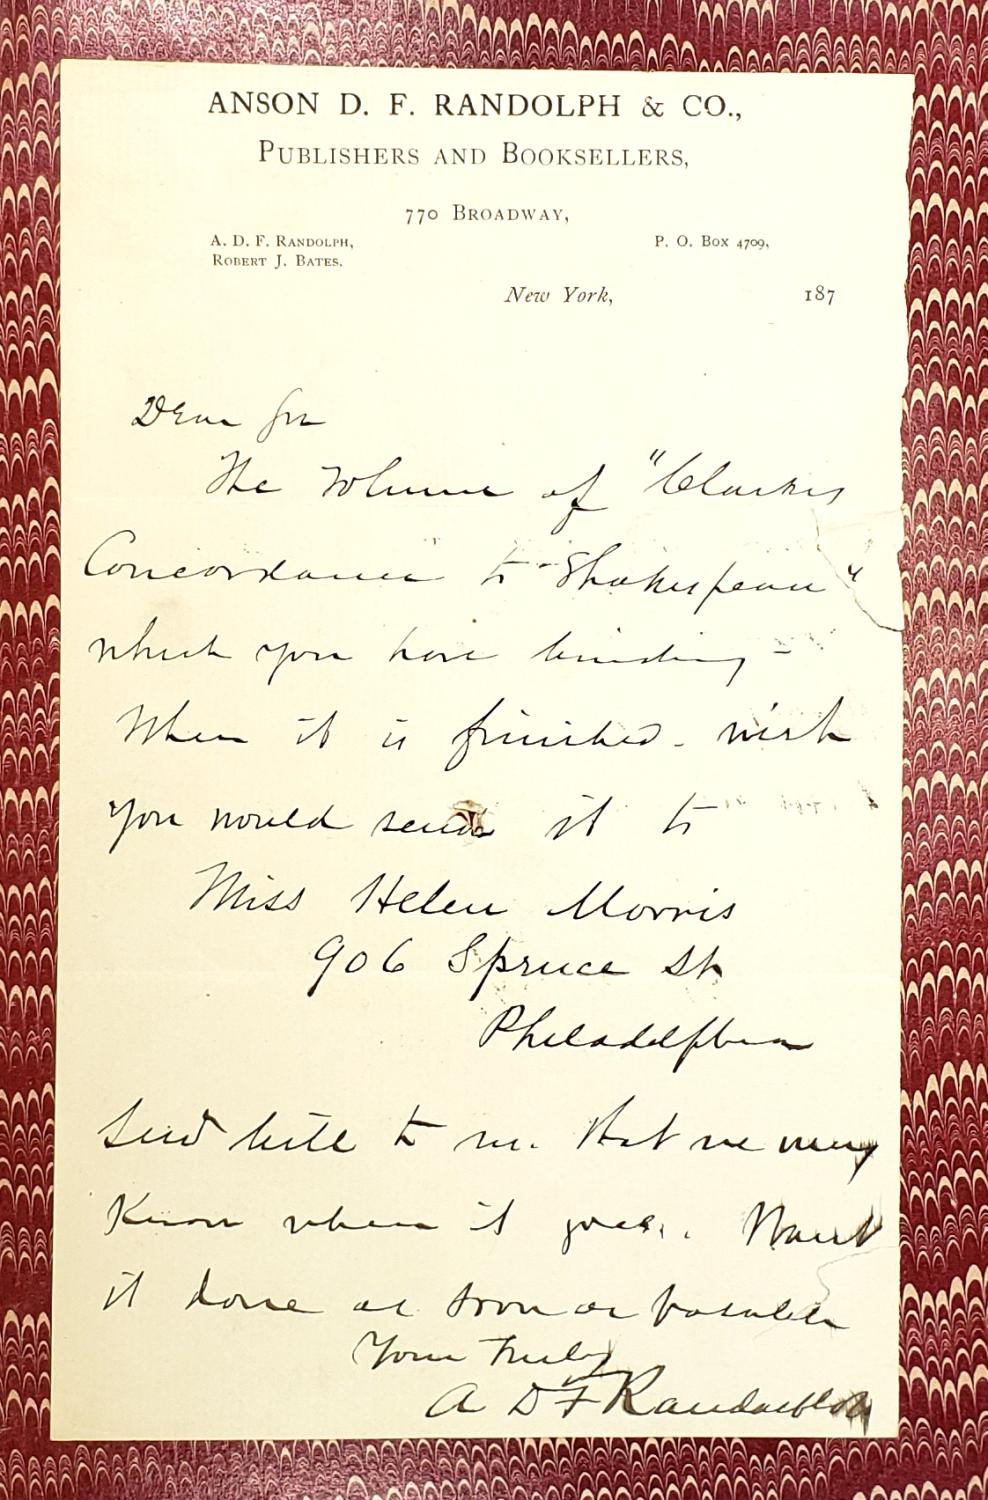 ANSON D. F. RANDOLPH & CO.,
PUBLISHERS AND BOOKSELLERS,
770 BROADWAY,
A. D. F. RANDOLPH, P. O. BOX 4709,
ROBERT J. BATES.
New York, 187
Dear Sir
The Volume of "Clarkes
Concordance to Shakespeare"
which you have binding -
When it is finished - wish
you would send it to
Miss Helen Morris
906 Spruce St
Philadelphia
Send bill to me that we may
Know when it goes. Want
it done as soon as possible
Yours Truly
A D F Randolph